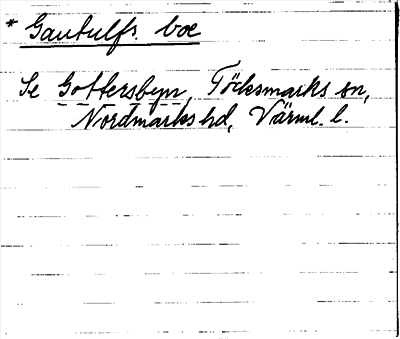 * Gautulfs boe
Se Gottersbyn, Töcksmarks sn,
Nordmarks hd, Värml. l.